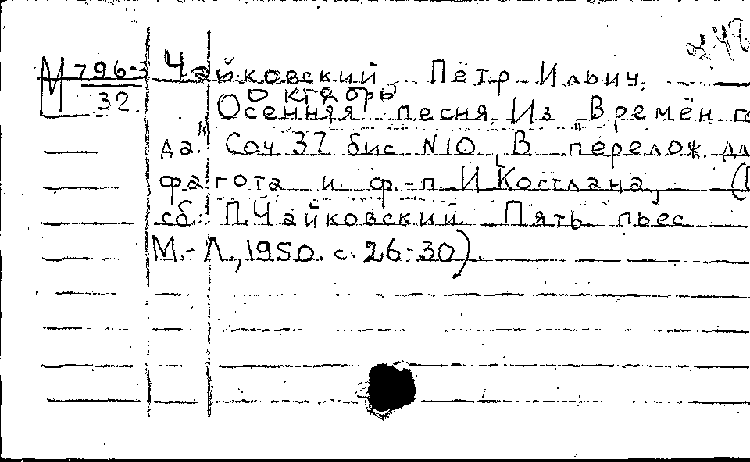 М 796-3
32
Чайковский Пётр Ильич.
Октябрь
Осенняя песня. Из "Времён го
да". Соч. 37 бис N10. В перелож. дл
фагота и ф.-п. И. Костлана,
сб: П. Чайковский Пять пьес
М.-Л., 1950. с. 26-30).